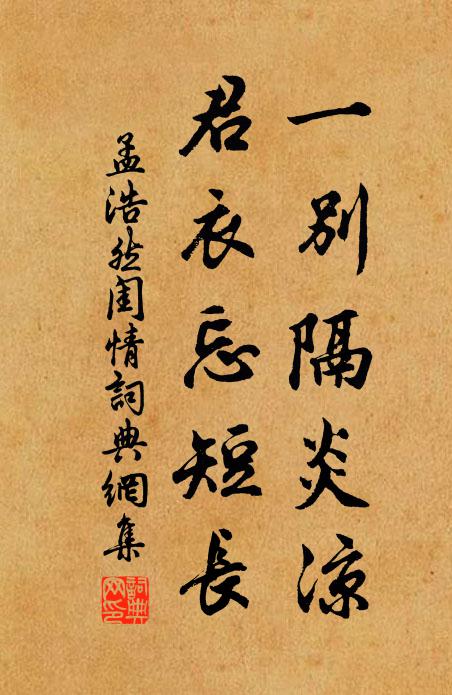 一別隔炎涼
君衣忘短長
孟浩然閨情詞典網集
詞典
网印